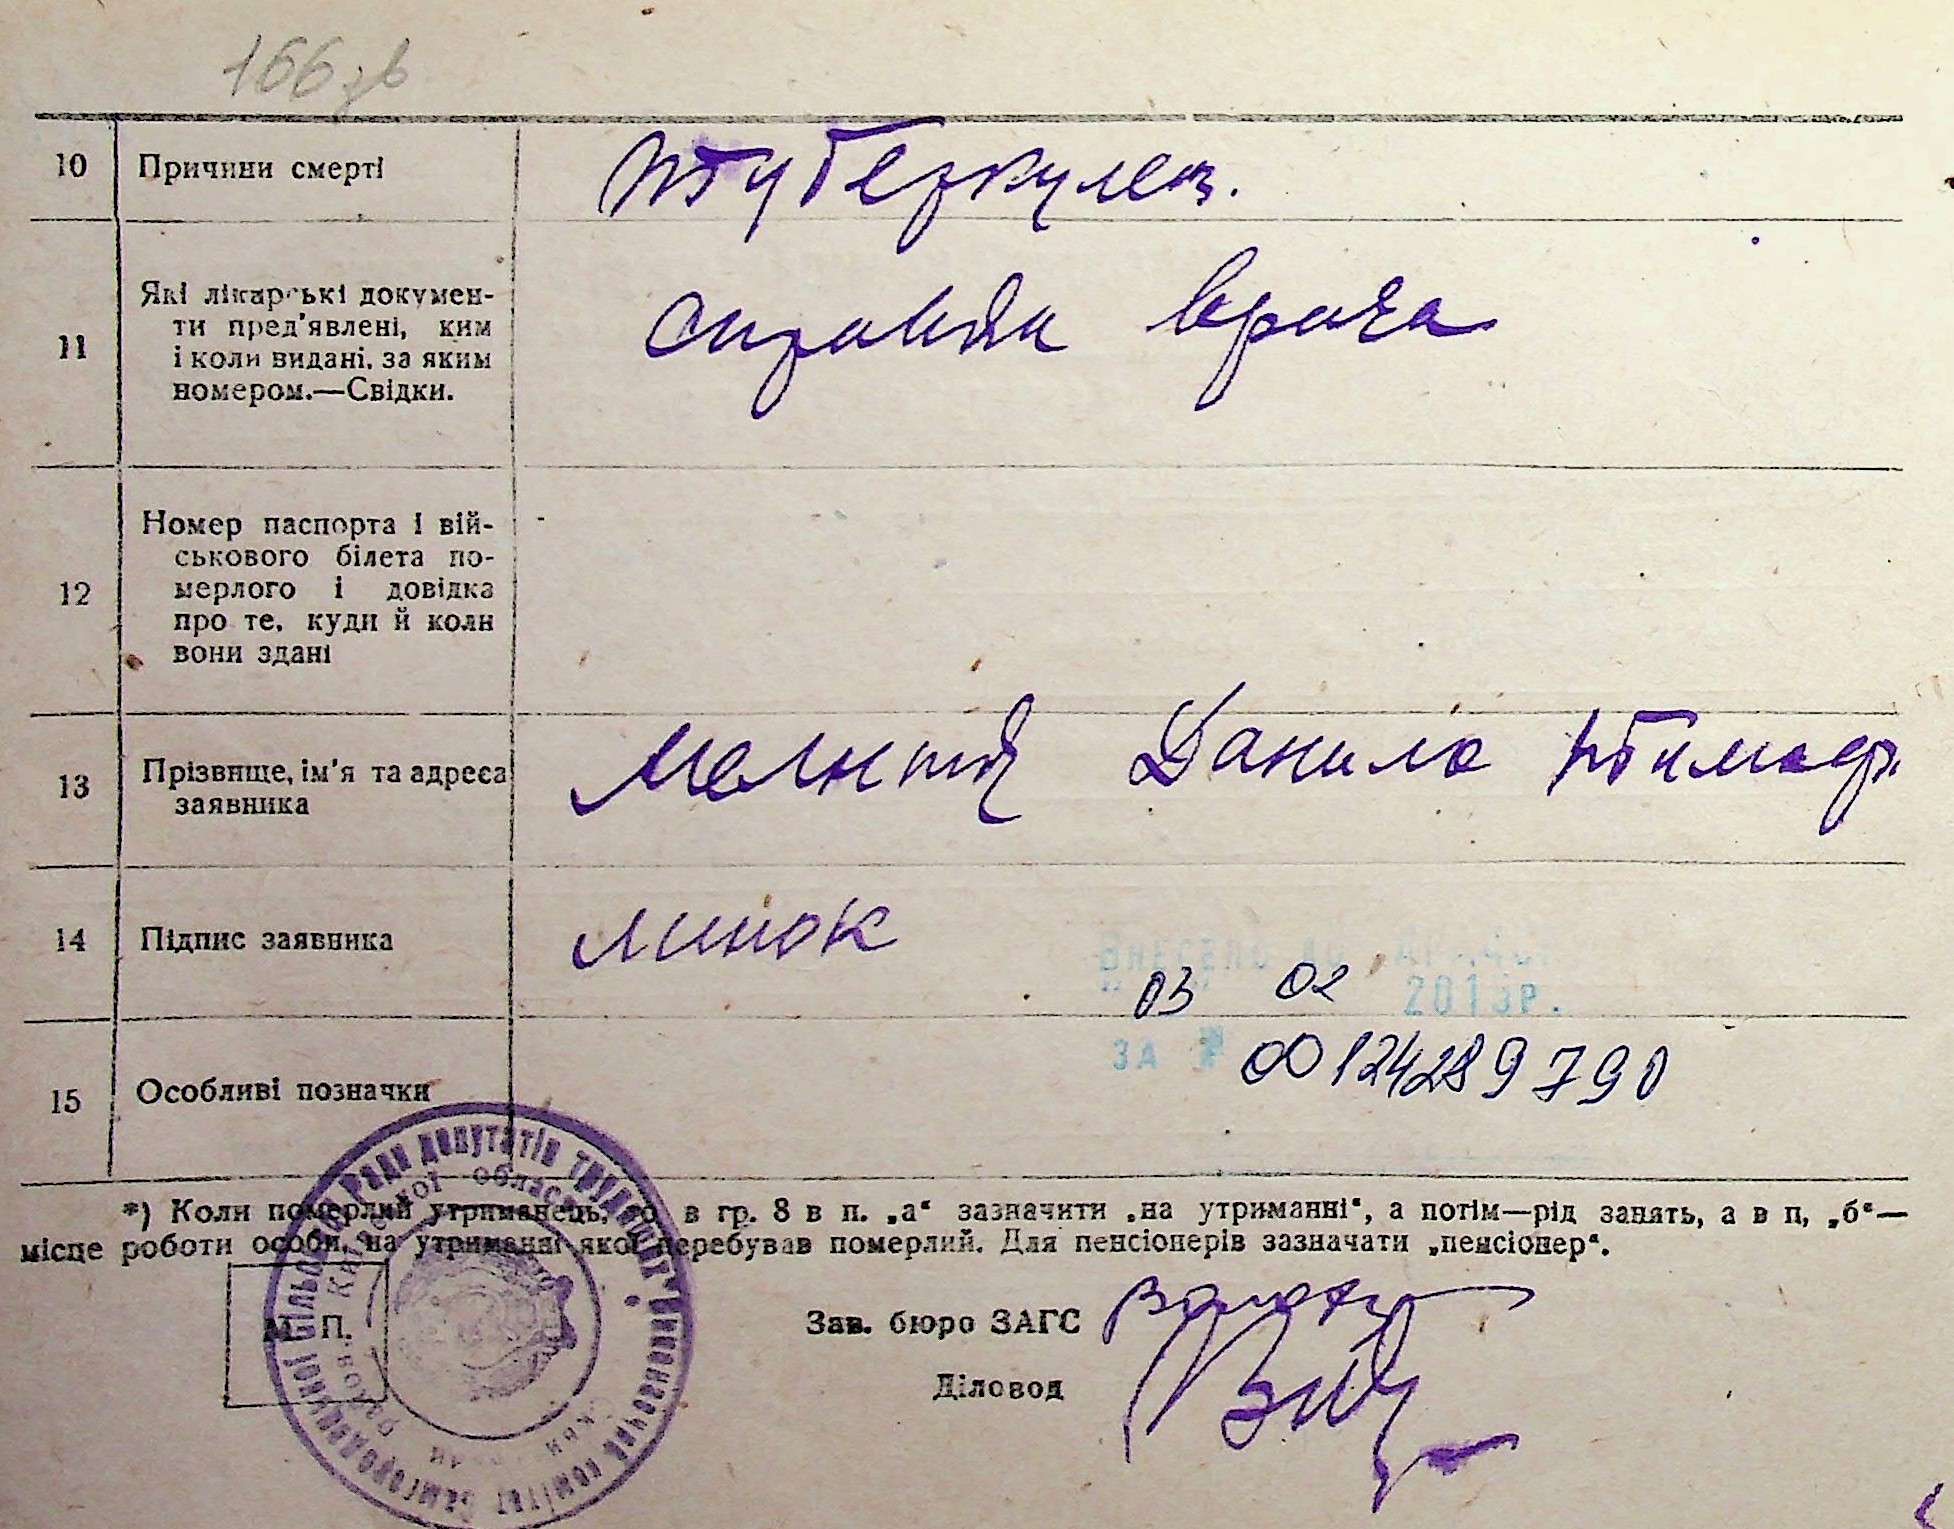 166 зв
10 Причини смерті
туберкулез.
11 Які лікарські докумен-
ти пред'явлені, ким
і коли видані, за яким
номером.—Свідки.
справка врача
12 Номер паспорта і вій-
ськового білета по-
мерлого і довідка
про те, куди й коли
вони здані
13 Прізвище, ім'я та адреса
заявника
Данило Тимоф.
14 Підпис заявника
ВНЕСЕНО ДО
03 02 2013Р.
ЗА № 00124289790
15 Особливі позначки
*) Коли померлий утриманець, то в гр. 8 в п. „а“ зазначити „на утриманні“, а потім—рід занять, а в п. „б“—
місце роботи особи, на утриманні якої перебував померлий. Для пенсіонерів зазначати „пенсіонер“.
М. П.
Зав. бюро ЗАГС
Діловод
Виконавчий комітет Самгородоцької сільської ради депутатів трудящих
Київської області